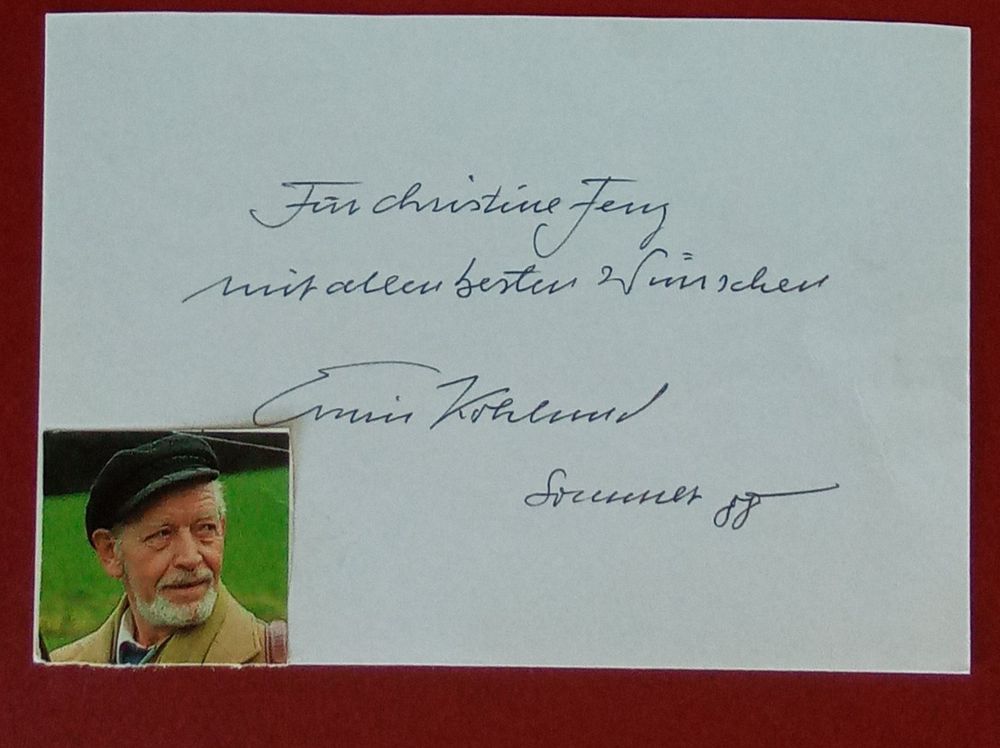 Für Christine Feng
mit allen besten Wünschen
Erwin Kohlund
Sommer 88